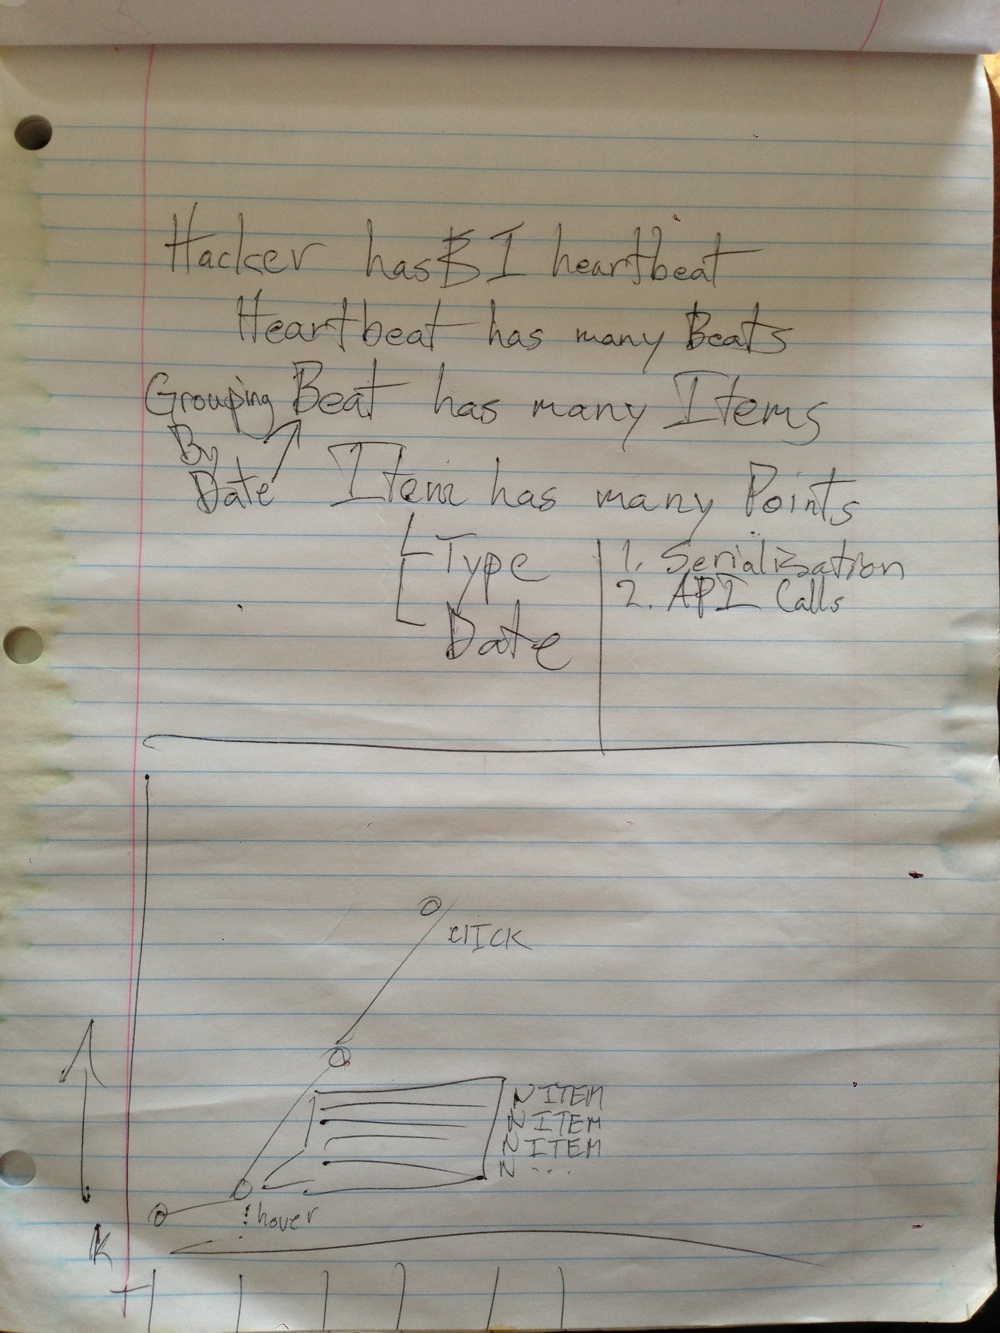 Hacker has I heartbeat
Heartbeat has many Beats
Grouping Beat has many Items
By
Date Item has many Points
Type
Date
1. Serialization
2. API Calls
CLICK
N ITEM
N ITEM
N ITEM
N ...
! hover
K